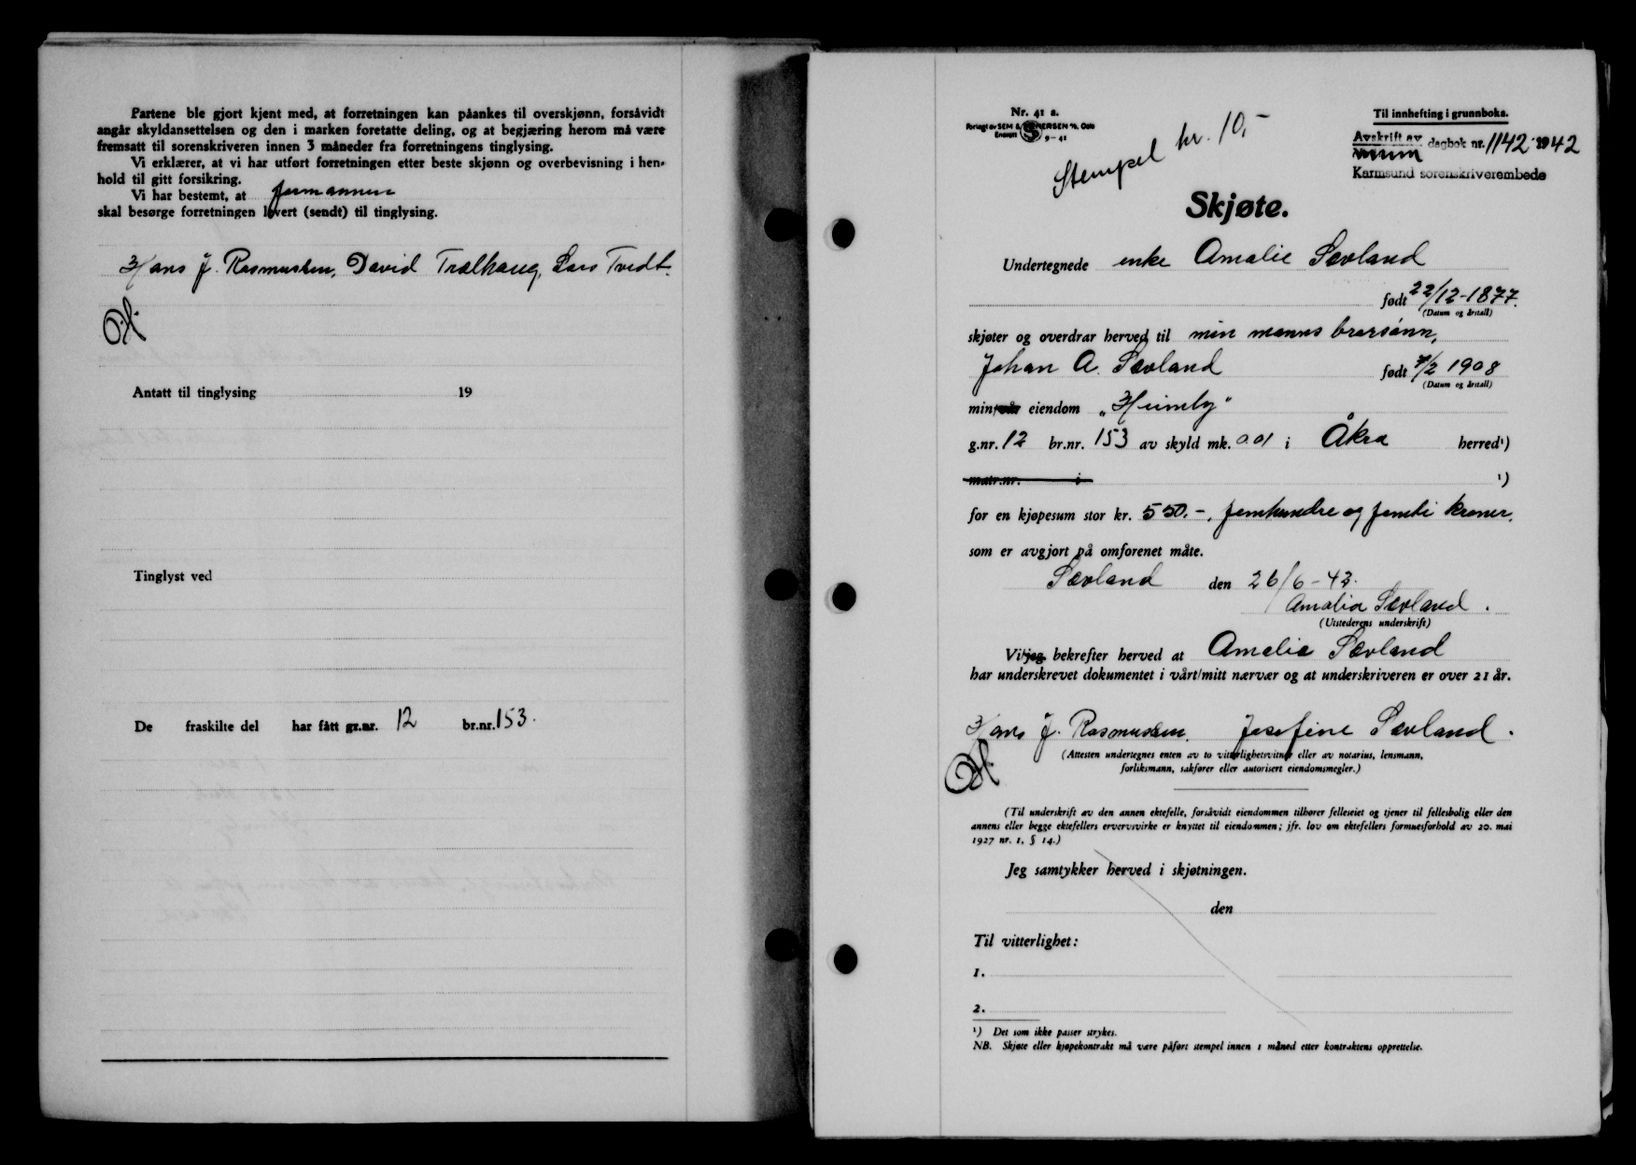 Partene ble gjort kjent med, at forretningen kan påankes til overskjønn, forsåvidt
angår skyldansettelsen og den i marken foretatte deling, og at begjæring herom må være
fremsatt til sorenskriveren innen 3 måneder fra forretningens tinglysing.
Vi erklærer, at vi har utført forretningen etter beste skjønn og overbevisning i hen-
hold til gitt forsikring.
Vi har bestemt, at formannen
skal besørge forretningen levert (sendt) til tinglysing.
Hans J. Rasmussen, David Tralhaug, Lars Tvedt.
Antatt til tinglysing 19
Tinglyst ved
De fraskilte del har fått gr.nr. 12 br.nr. 153.
Nr. 41 a.
Forlagt av SEM & STENERSEN A/S, Oslo
9-41
Stempel kr. 10,-
Til innhefting i grunnboka.
Avskrift av
dagbok nr. 1142 1942
Karmsund sorenskriverembede
Skjøte.
Undertegnede enke Amalie Sævland
født 22/12-1877.
(Datum og årstall)
skjøter og overdrar herved til min manns brorsønn,
Johan A. Sævland født 7/2 1908
(Datum og årstall)
min/vår eiendom „Heimly"
g.nr. 12 br.nr. 153 av skyld mk. 0.01 i Åkra herred¹)
matr.nr. i ¹)
for en kjøpesum stor kr. 550.-, femhundre og femti kroner,
som er avgjort på omforenet måte.
Sævland den 26/6-42.
Amalia Sævland.
(Utstederens underskrift)
Vi/jeg bekrefter herved at Amalia Sævland
har underskrevet dokumentet i vårt/mitt nærvær og at underskriveren er over 21 år.
Hans J. Rasmussen. Josefine Sævland.
(Attesten undertegnes enten av to vitterlighetsvitner eller av notarius, lensmann,
forliksmann, sakfører eller autorisert eiendomsmegler.)
(Til underskrift av den annen ektefelle, forsåvidt eiendommen tilhører felleseiet og tjener til fellesbolig eller den
annens eller begge ektefellers ervervsvirke er knyttet til eiendommen; jfr. lov om ektefellers formuesforhold av 20. mai
1927 nr. 1, § 14.)
Jeg samtykker herved i skjøtningen.
den
Til vitterlighet:
1.
2.
¹) Det som ikke passer strykes.
NB. Skjøte eller kjøpekontrakt må være påført stempel innen 1 måned etter kontraktens opprettelse.